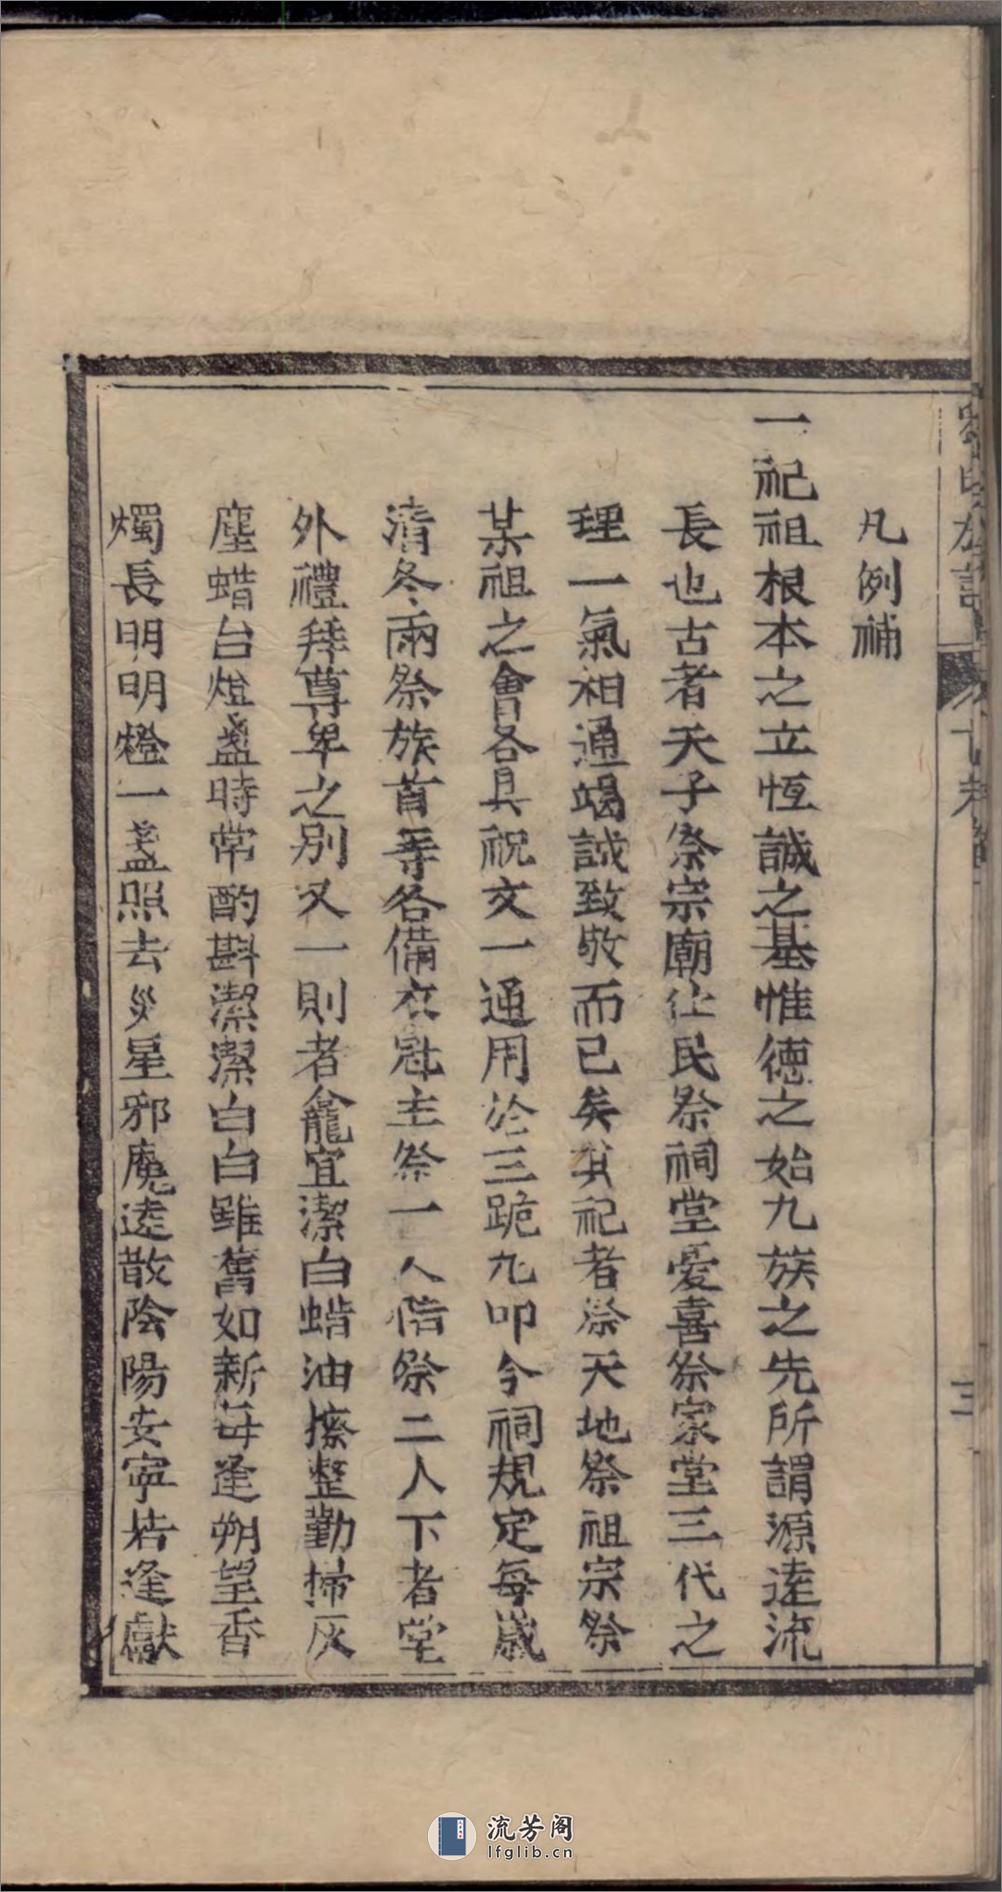 凡例補
一祀祖根本之立恆誠之基惟德之始九族之先所謂源逺流
長也古者天子祭宗廟仕民祭祠堂憂喜祭家堂三代之
理一氣相通竭誠致敬而已矣其祀者祭天地祭祖宗祭
某祖之會各具祝文一通用於三跪九叩今祠規定每歲
清冬兩祭族首等各備衣冠主祭一人偕祭二人下者堂
外禮拜尊卑之別又一則者龕宜潔白蜡油擦整勤掃灰
塵蜡台燈盞時常酌斟潔潔白白雖舊如新每逢朔望香
燭長明明燈一盞照去災星邪魔逺散陰陽安寧若逢獻
三
流芳阁
lfglib.cn